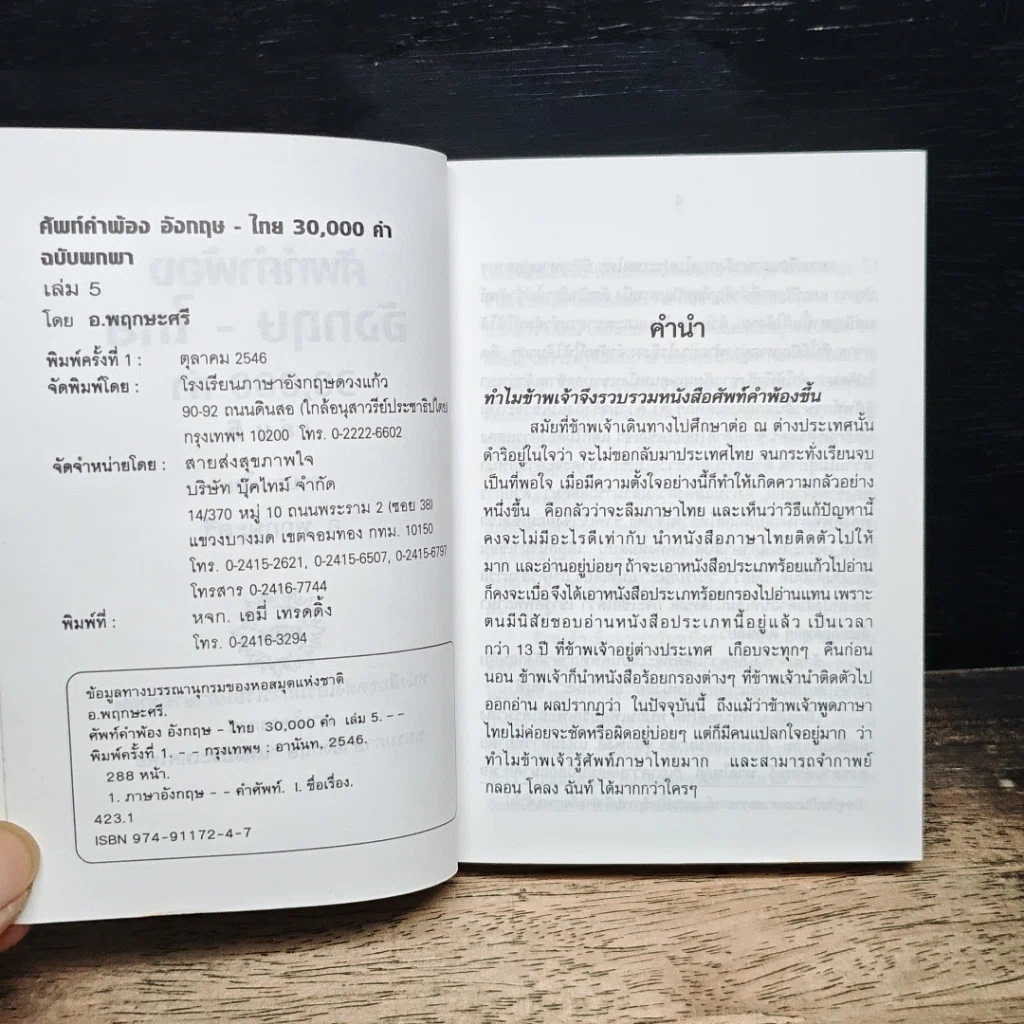 ศัพท์คำพ้อง อังกฤษ - ไทย 30,000 คำ
ฉบับพกพา
เล่ม 5
โดย อ.พฤกษะศรี
พิมพ์ครั้งที่ 1 : ตุลาคม 2546
จัดพิมพ์โดย : โรงเรียนภาษาอังกฤษดวงแก้ว
90-92 ถนนดินสอ (ใกล้อนุสาวรีย์ประชาธิปไตย
กรุงเทพฯ 10200 โทร. 0-2222-6602
จัดจำหน่ายโดย : สายส่งสุขภาพใจ
บริษัท บุ๊คไทม์ จำกัด
14/370 หมู่ 10 ถนนพระราม 2 (ซอย 38)
แขวงบางมด เขตจอมทอง กทม. 10150
โทร. 0-2415-2621, 0-2415-6507, 0-2415-6797
โทรสาร 0-2416-7744
พิมพ์ที่ : หจก. เอมี่ เทรดดิ้ง
โทร. 0-2416-3294
ข้อมูลทางบรรณานุกรมของหอสมุดแห่งชาติ
อ.พฤกษะศรี.
ศัพท์คำพ้อง อังกฤษ - ไทย 30,000 คำ เล่ม 5. - -
พิมพ์ครั้งที่ 1. - - กรุงเทพฯ : อานันท, 2546.
288 หน้า.
1. ภาษาอังกฤษ - - คำศัพท์. I. ชื่อเรื่อง.
423.1
ISBN 974-91172-4-7
คำนำ
ทำไมข้าพเจ้าจึงรวบรวมหนังสือศัพท์คำพ้องขึ้น
สมัยที่ข้าพเจ้าเดินทางไปศึกษาต่อ ณ ต่างประเทศนั้น
ดำริอยู่ในใจว่า จะไม่ขอกลับมาประเทศไทย จนกระทั่งเรียนจบ
เป็นที่พอใจ เมื่อมีความตั้งใจอย่างนี้ก็ทำให้เกิดความกลัวอย่าง
หนึ่งขึ้น คือกลัวว่าจะลืมภาษาไทย และเห็นว่าวิธีแก้ปัญหานี้
คงจะไม่มีอะไรดีเท่ากับ นำหนังสือภาษาไทยติดตัวไปให้
มาก และอ่านอยู่บ่อยๆ ถ้าจะเอาหนังสือประเภทร้อยแก้วไปอ่าน
ก็คงจะเบื่อ จึงได้เอาหนังสือประเภทร้อยกรองไปอ่านแทน เพราะ
ตนมีนิสัยชอบอ่านหนังสือประเภทนี้อยู่แล้ว เป็นเวลา
กว่า 13 ปี ที่ข้าพเจ้าอยู่ต่างประเทศ เกือบจะทุกๆ คืนก่อน
นอน ข้าพเจ้าก็นำหนังสือร้อยกรองต่างๆ ที่ข้าพเจ้านำติดตัวไป
ออกอ่าน ผลปรากฏว่า ในปัจจุบันนี้ ถึงแม้ว่าข้าพเจ้าพูดภาษา
ไทยไม่ค่อยจะชัดหรือผิดอยู่บ่อยๆ แต่ก็มีคนแปลกใจอยู่มาก ว่า
ทำไมข้าพเจ้ารู้ศัพท์ภาษาไทยมาก และสามารถจำกาพย์
กลอน โคลง ฉันท์ ได้มากกว่าใครๆ